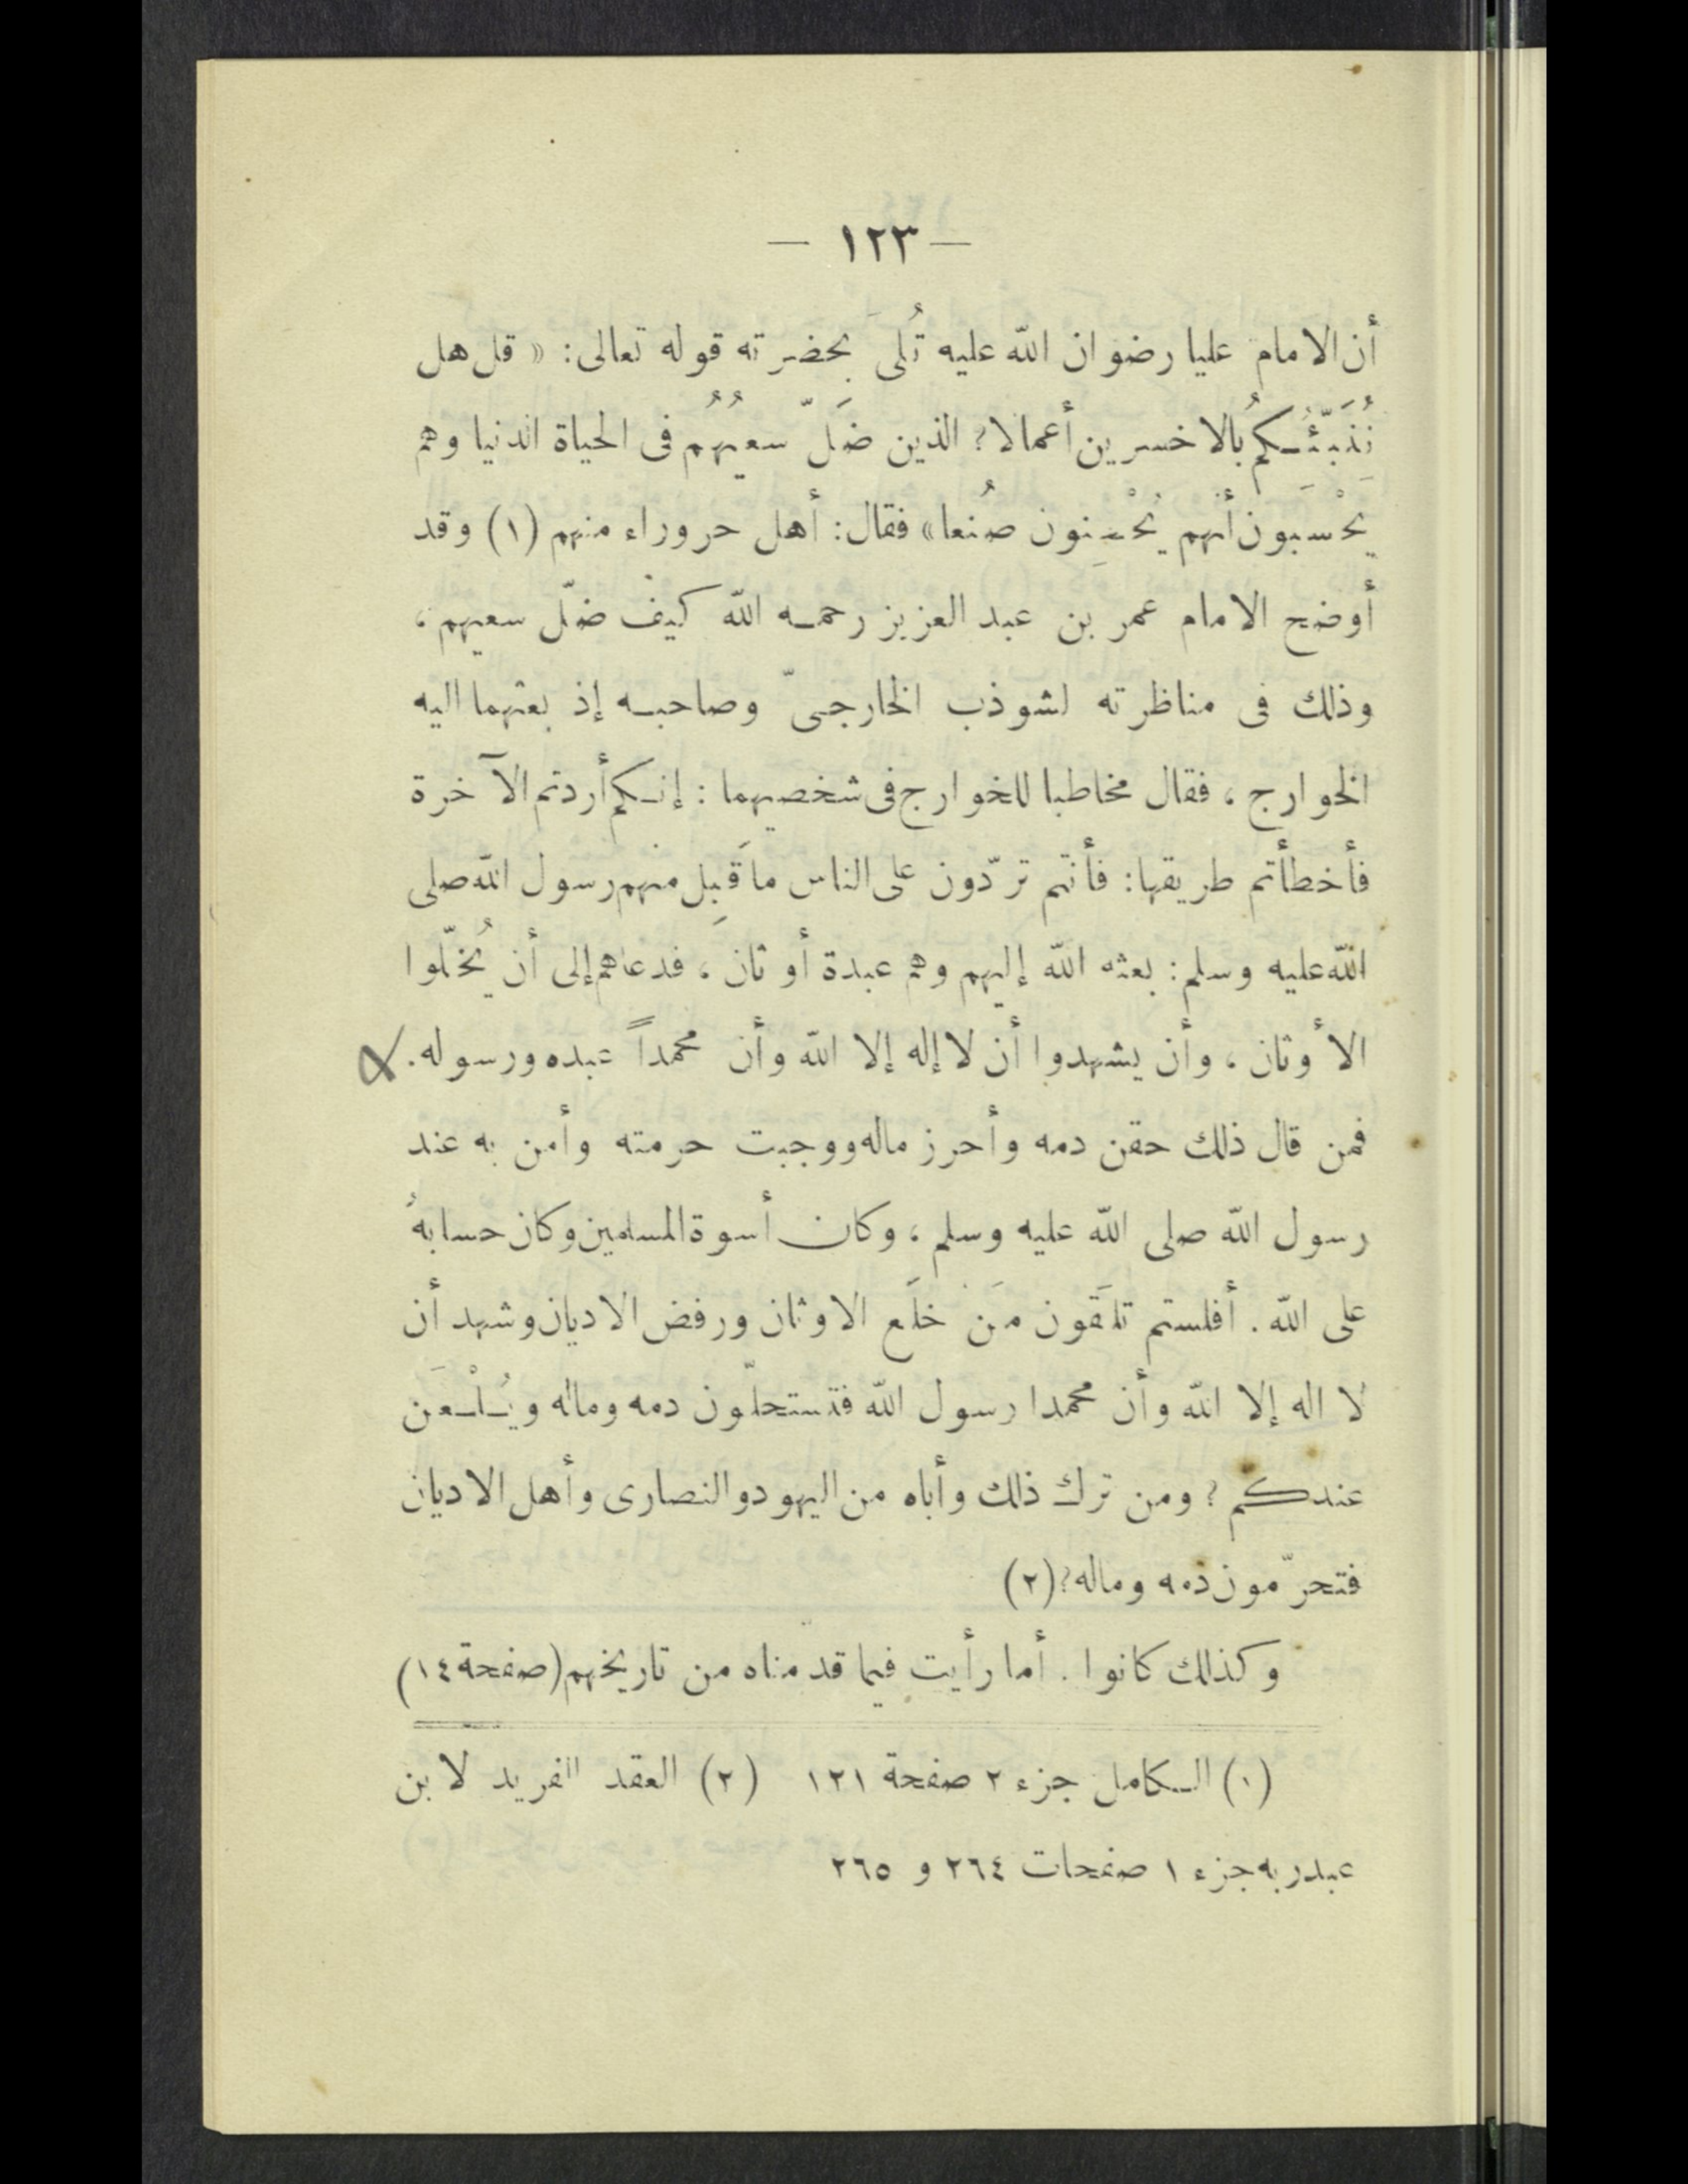 — ١٢٣ —
أن الامام عليا رضوان الله عليه تُلىَ بحضرته قوله تعالى: « قل هل
نُنَبّئُكم بالاخسرين أعمالا؟ الذين ضَلّ سعيُهُم فى الحياة الدنيا وهم
يحْسَبون أنهم يُحْسِنون صُنعا» فقال: أهل حروراء منهم (١) وقد
أوضح الامام عمر بن عبد العزيز رحمه الله كيف ضلّ سعيهم،
وذلك فى مناظرته لشوذب الخارجىّ وصاحبه إذ بعثهما اليه
الخوارج، فقال مخاطبا للخوارج فى شخصيهما: إنكم أردتم الآخرة
فأخطأتم طريقها: فأنتم تردّون على الناس ما قَبِل منهم رسول الله صلى
الله عليه وسلم: بعثه الله إليهم وهم عبدة أوثان، فدعاهم إلى أن يُخلّوا
الأوثان، وأن يشهدوا أن لا إله إلا الله وأن محمداً عبده ورسوله.
فمن قال ذلك حقن دمه وأحرز ماله ووجبت حرمته وأمن به عند
رسول الله صلى الله عليه وسلم، وكان أسوة المسلمين وكان حسابهُ
على الله. أفلستم تلقَون مَن خلَع الاوثان ورفض الاديان وشهد أن
لا اله إلا الله وأن محمدا رسول الله فتستحلّون دمه وماله ويُلْعَن
عندكم؟ ومن ترك ذلك وأباه من اليهود والنصارى وأهل الاديان
فتحرّمون دمه وماله؟(٢)
وكذلك كانوا. أما رأيت فيما قدمناه من تاريخهم (صفحة ١٤)
(١) الكامل جزء ٢ صفحة ١٢١ (٢) العقد الفريد لابن
عبدربه جزء ١ صفحات ٢٦٤ و ٢٦٥